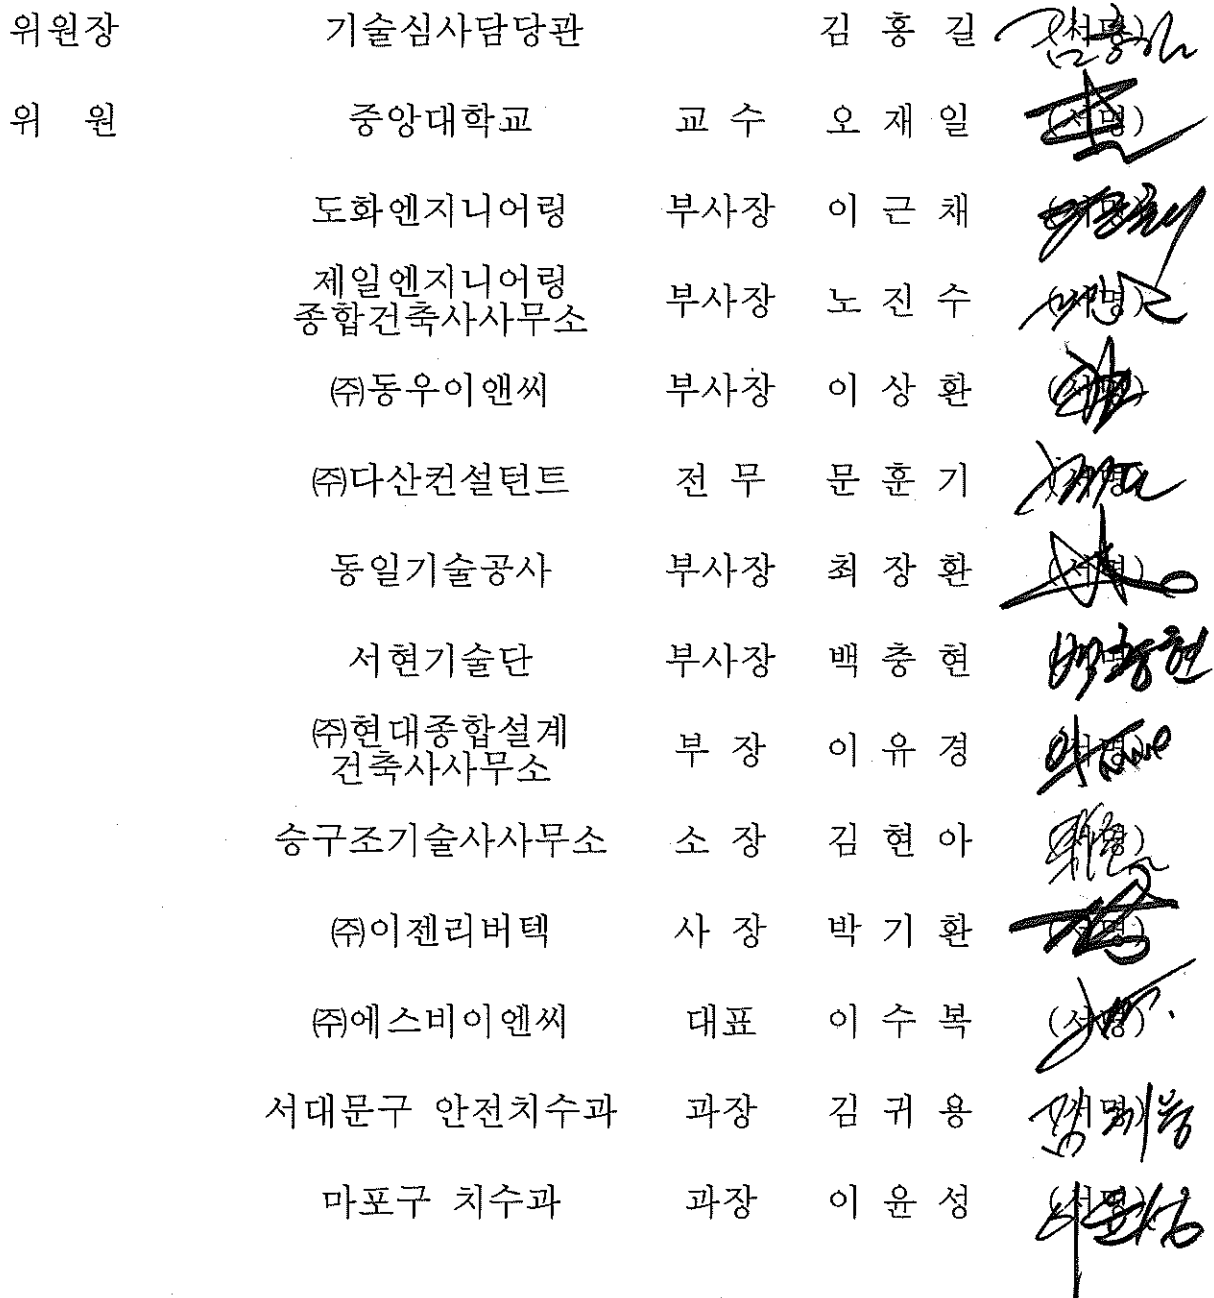 위원장 기술심사담당관 김 홍 길 (서명)
위 원 중앙대학교 교 수 오 재 일 (서명)
도화엔지니어링 부사장 이 근 채 (서명)
제일엔지니어링
종합건축사사무소 부사장 노 진 수 (서명)
㈜동우이앤씨 부사장 이 상 환 (서명)
㈜다산컨설턴트 전 무 문 훈 기 (서명)
동일기술공사 부사장 최 장 환 (서명)
서현기술단 부사장 백 충 현 (서명)
㈜현대종합설계
건축사사무소 부 장 이 유 경 (서명)
승구조기술사사무소 소 장 김 현 아 (서명)
㈜이젠리버텍 사 장 박 기 환 (서명)
㈜에스비이엔씨 대표 이 수 복 (서명)
서대문구 안전치수과 과장 김 귀 용 (서명)
마포구 치수과 과장 이 윤 성 (서명)